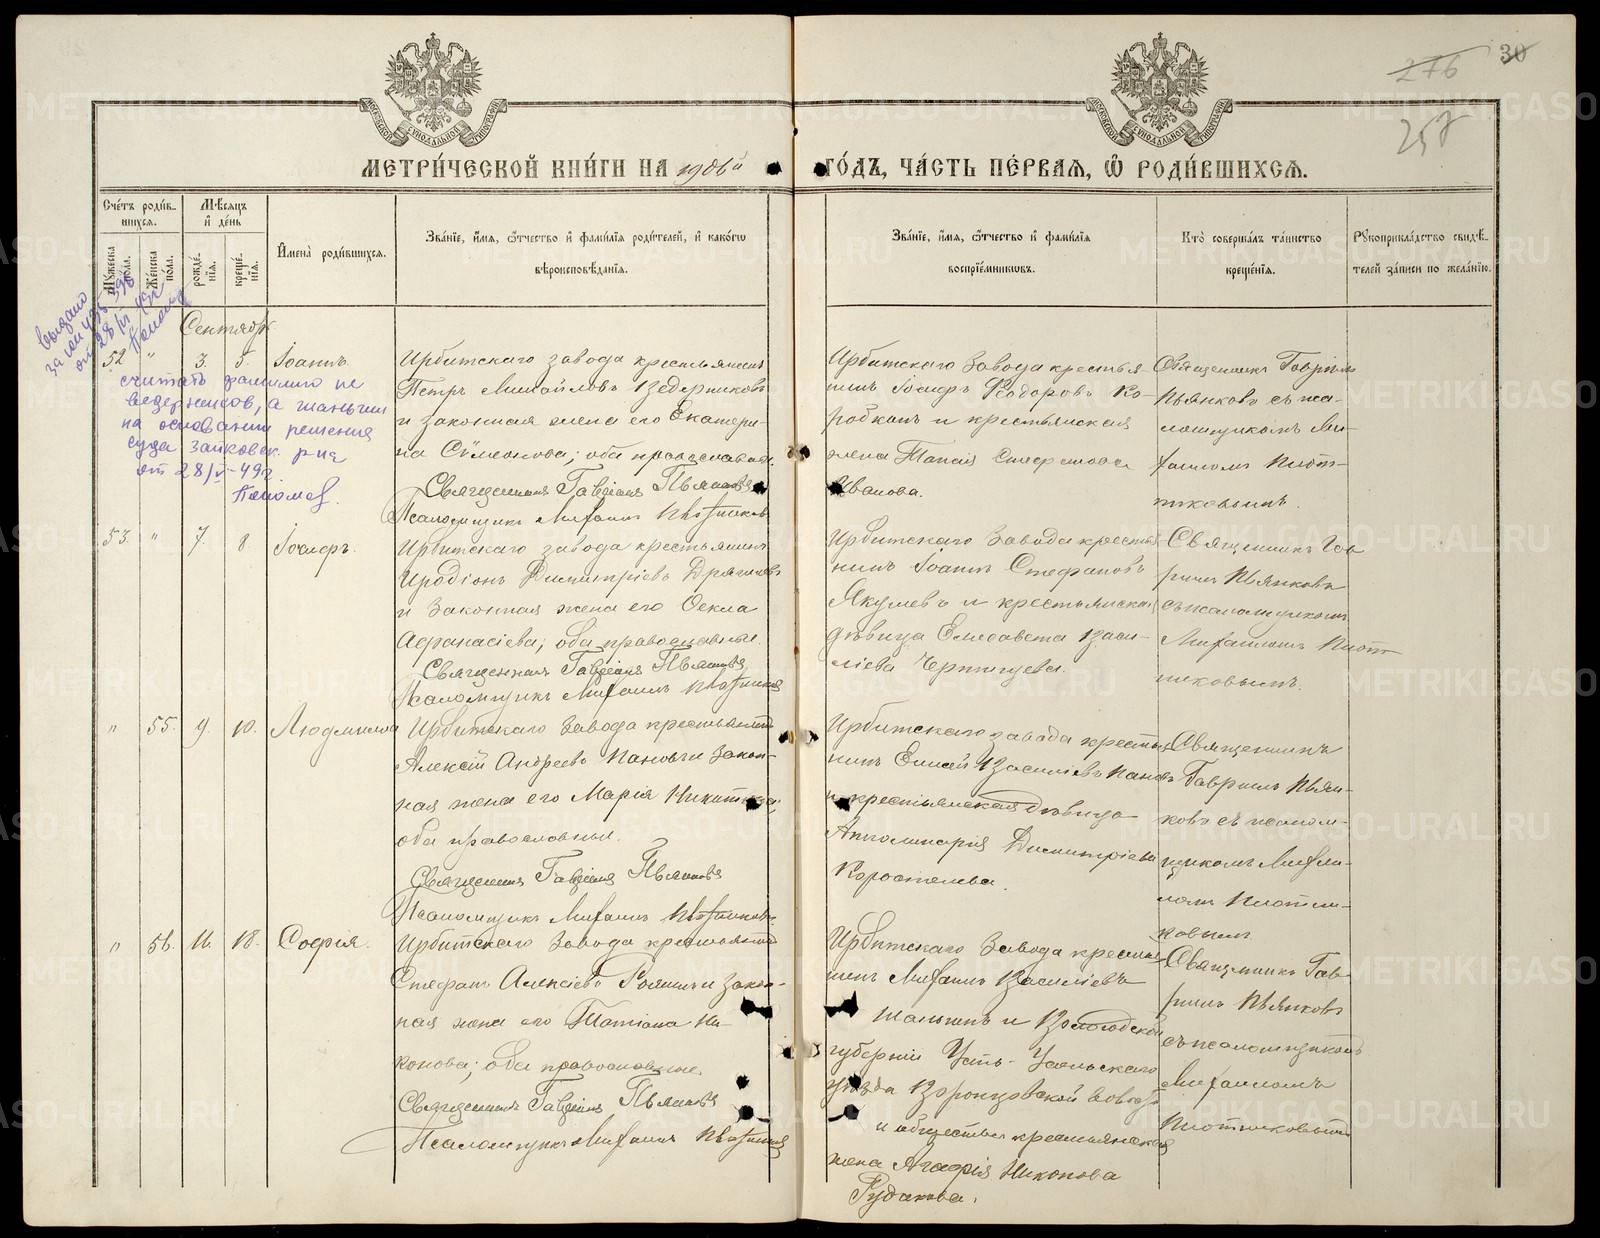 30
276
257
МЕТРИ́ЧЕСКОЙ КНИ́ГИ НА 1906й ГО́ДЪ, ЧА́СТЬ ПЕ́РВАЯ, Ѡ РОДИ́ВШИХСЯ.
Сче́тъ роди́в-
шихся.
Мѣ́сяцъ
и де́нь
Мꙋ́жеска
по́ла.
Же́нска
по́ла.
рожде́-
нїѧ.
креще́-
нїѧ.
И҆мена̀ роди́вшихся.
Зва́нїе, и҆́мѧ, ѻ҆́тчество и҆ фамѝлїѧ роди́телей, и҆ како́гѡ
вѣроисповѣ́данїѧ.
Зва́нїе, и҆́мѧ, ѻ҆́тчество и҆ фамѝлїѧ
воспрїе́мникѡвъ.
Кто̀ соверша́лъ та́инство
креще́нїѧ.
Рꙋкоприкла́дство свидѣ́-
телей за́писи по жела́нїю.
выдано
от 28/VI 49г
Сентябрь
52 " 3. 5. Іоаннъ.
считать фамилию не
Ведерников, а Шаньгин
на основании решения
суда Зайковск. р-на
от 28/V-49г.
Ирбитскаго завода крестьянинъ
Петръ Михайловъ Ведерниковъ
и законная жена его Екатери-
на Сѵмеонова; оба православн.
Священникъ Гавріилъ Пьянковъ
Псаломщикъ Михаилъ Плотниковъ
Ирбитскаго завода крестья-
нинъ Іосифъ Ѳеодоровъ Ко-
робкинъ и крестьянская
жена Таисія Стефанова
Иванова.
Священникъ Гавріилъ
Пьянковъ съ пса-
ломщикомъ Ми-
хаиломъ Плот-
никовымъ.
53. " 7. 8 Іосифъ.
Ирбитскаго завода крестьянинъ
Иродіонъ Димитріевъ Дрягилевъ
и законная жена его Ѳекла
Аѳанасіева; оба православные.
Священникъ Гавріилъ Пьянковъ
Псаломщикъ Михаилъ Плотниковъ
Ирбитскаго завода крестья-
нинъ Іоаннъ Стефановъ
Якушевъ и крестьянская
дѣвица Елисавета Васи-
ліева Чернышева.
Священникъ Гав-
ріилъ Пьянковъ
съ псаломщикомъ
Михаиломъ Плот-
никовымъ.
" 55. 9. 10. Людмилла
Ирбитскаго завода крестьянинъ
Алексій Андреевъ Пановъ и закон-
ная жена его Марія Никитина;
оба православные.
Священникъ Гавріилъ Пьянковъ
Псаломщикъ Михаилъ Плотниковъ.
Ирбитскаго завода крестья-
нинъ Елисей Василіевъ Пановъ
и крестьянская дѣвица
Апполинарія Димитріева
Коростелева.
Священникъ
Гавріилъ Пьян-
ковъ съ псалом-
щикомъ Михаи-
ломъ Плотни-
ковымъ
" 56. 16. 18. Софія.
Ирбитскаго завода крестьянинъ
Стефанъ Алексіевъ и закон-
ная жена его Татіана Ни-
конова; оба православные.
Священникъ Гавріилъ Пьянковъ
Псаломщикъ Михаилъ Плотниковъ
Ирбитскаго завода крестья-
нинъ Михаилъ Василіевъ
Шаньгинъ и Вологодской
губерніи Усть-Усольскаго
уѣзда Воронцовской волости
и общества крестьянская
жена Агафія Никонова
Рудакова.
Священникъ Гав-
ріилъ Пьянковъ
съ псаломщикомъ
Михаиломъ
Плотниковымъ